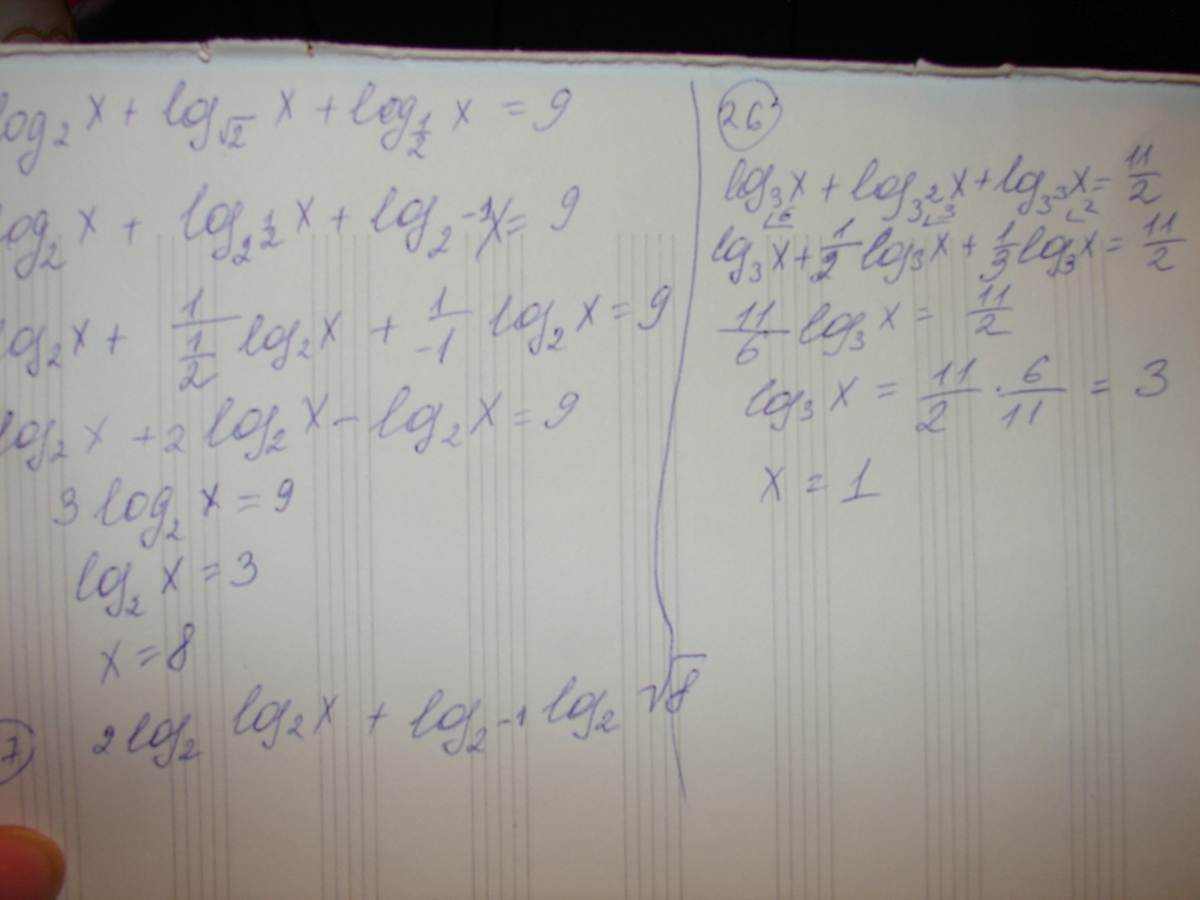 log₂ x + log_√2 x + log_1/2 x = 9
log₂ x + log_2^1/2 x + log_2^-1 x = 9
log₂ x + 1/(1/2) log₂ x + 1/-1 log₂ x = 9
log₂ x + 2 log₂ x - log₂ x = 9
3 log₂ x = 9
log₂ x = 3
x = 8
7) 2 log₂ log₂ x + log_2^-1 log₂ √8
26
log₃ x + log_3^2 x + log_3^3 x = 11/2
∟6 ∟3 ∟2
log₃ x + 1/2 log₃ x + 1/3 log₃ x = 11/2
11/6 log₃ x = 11/2
log₃ x = 11/2 · 6/11 = 3
x = 1